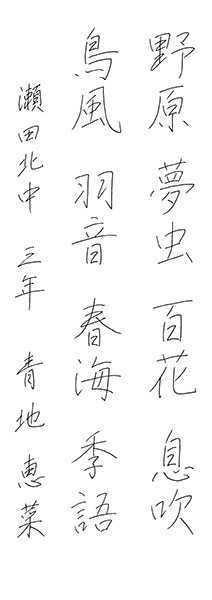 野原 夢虫 百花 息吹
鳥風 羽音 春海 季語
瀬田北中 三年 青地 恵菜